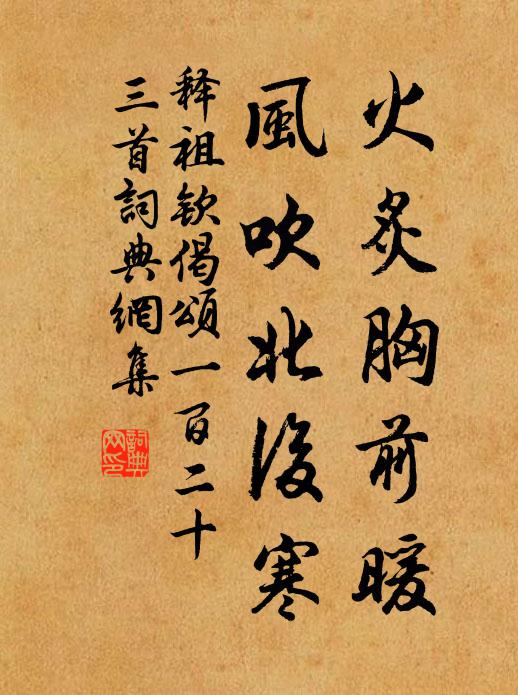 火炙胸前暖
風吹北後寒
释祖欽偈頌一百二十
三首詞典網集
詞典网印